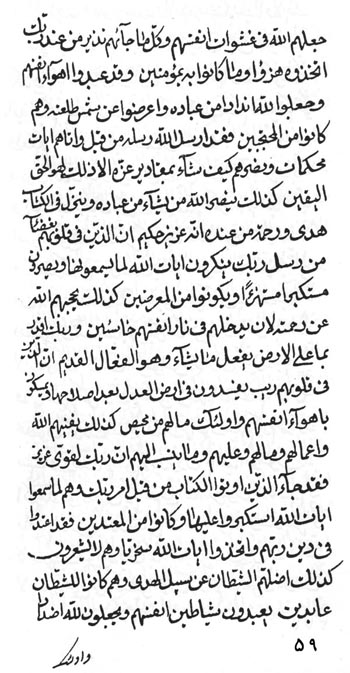 جعلهم الله فی غشوات انفسهم وکل ما جآئهم نذیر من عند ربک
اتخذوه هزؤا وما کانوا به بمؤمنین وقد عبدوا اهوآء انفسهم
وجعلوا لله اندادا من عباده واعرضوا عن شمس طلعته وهم
کانوا من المحتجبین فقد ارسل الله رسله من قبل واتاهم ایات
محکمات وینصرهم کیف یشآء بمقادیر عزه الا ذلک لهو الحق
الیقین کذلک ینصر الله من یشآء من عباده وینزل فی الکتاب
هدی ورحمة من عنده انه عزیز حکیم ان الذین فی قلوبهم
من رسل ربک ینکرون ایات الله لما یسمعونها ویصرون
مستکبرا مستهزءا ویکونوا من المعرضین کذلک یحجبهم الله
عن رحمته لان یدخلهم فی نار انفسهم خاسئین وربک
بما علی الارض یفعل ما یشآء وهو الفعال القدیم ان الذین
فی قلوبهم ریب یفسدون فی ارض العدل بعد اصلاحها
باهوآء انفسهم واولئک ما لهم من محیص کذلک یفنیهم الله
واعمالهم وما لهم وعلیهم وما ینسب الیهم ان ربک لقوی عزیز
فقد جآء الذین اوتوا الکتاب من قبل امر ربک وهم لما سمعوا
ایات الله استکبروا علیها وکانوا من المعتدین فقد اعتدوا
فی دین ربهم واتخذوا ایات الله سخریا وهم لا یشعرون
کذلک اضلهم الشیطان عن سبیل الهدی وهم کانوا للشیطان
عابدین یعبدون شیاطین انفسهم ویجعلون لله اضدادا
۵۹
واولئک